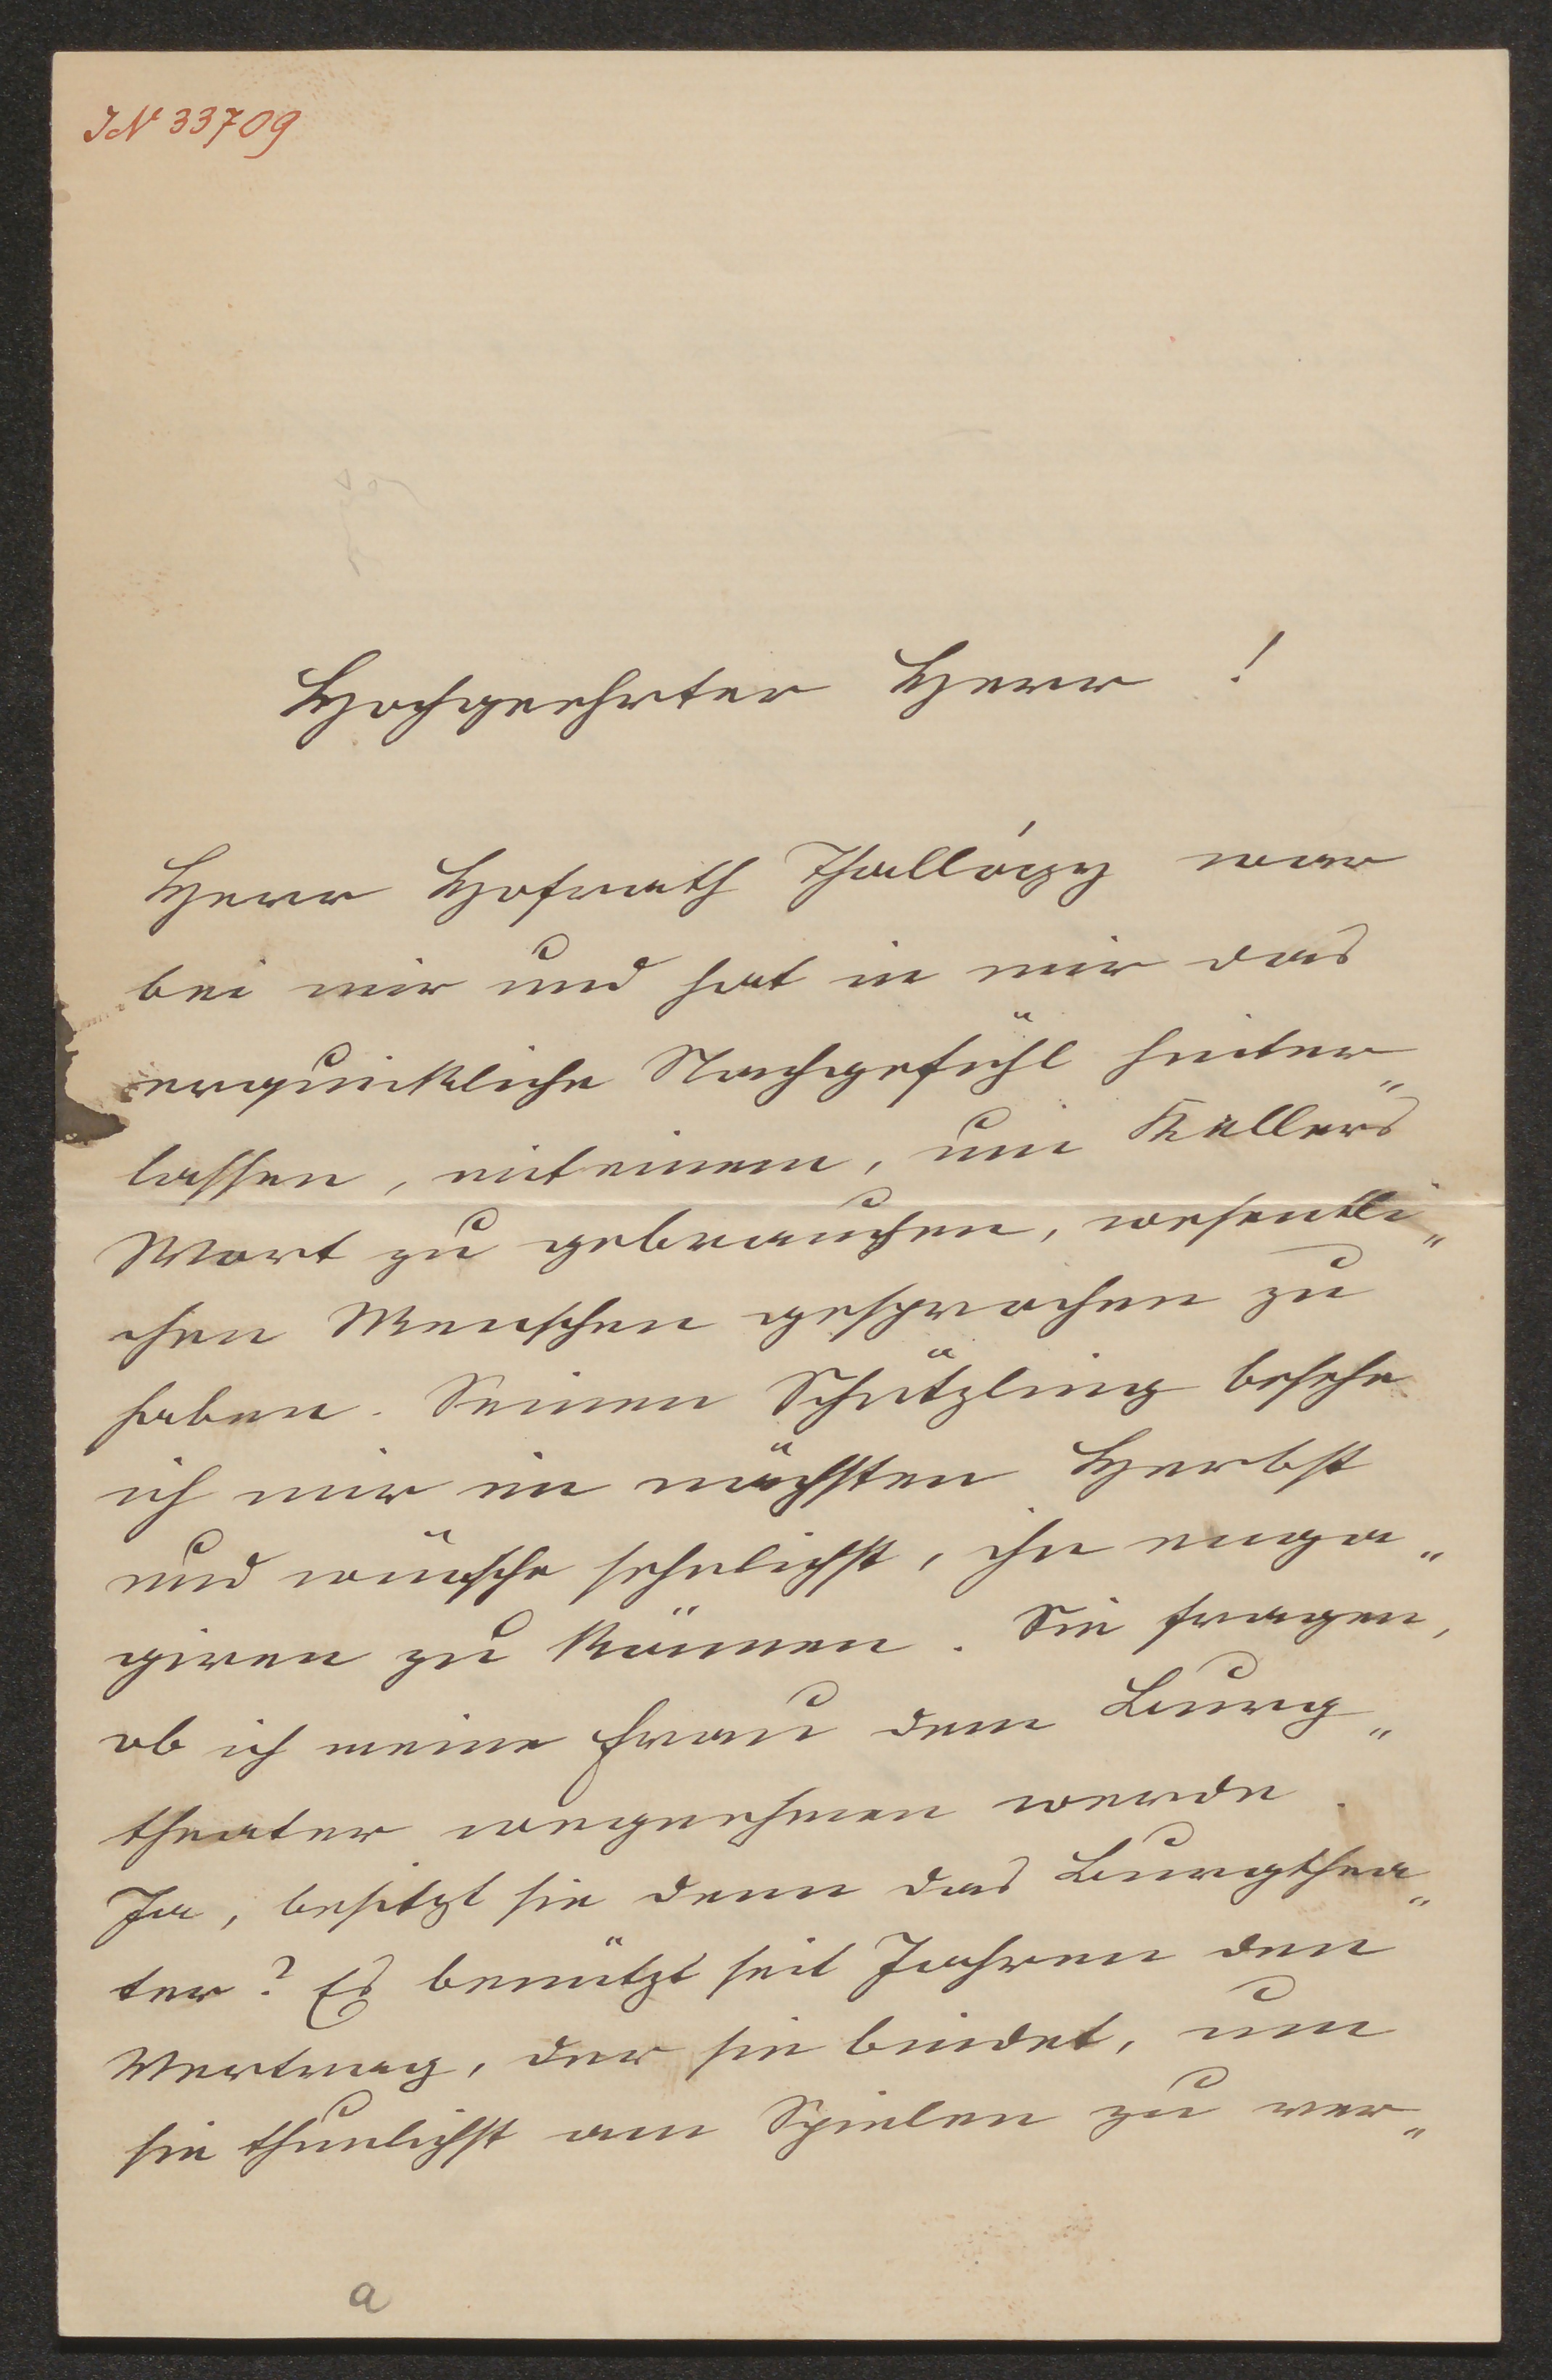 IN 33709
Hochgeehrter Herr !
Herr Hofrath Thallóczy war
bei mir und hat in mir das
erquickliche Nachgefühl hinter„
lassen, mit einem, um Kellers
Wort zu gebrauchen, wesentli„
chen Menschen gesprochen zu
haben. Seinen Schützling besehe
ich mir im nächsten Herbst
und wünsche sehnlichst, ihn enga„
giren zu können. Sie fragen,
ob ich meine Frau dem Burg„
theater wegnehmen werde.
Ja, besitzt sie denn das Burgthea„
ter? Es benützt seit Jahren den
Vertrag, der sie bindet, um
sie thunlichst am Spielen zu ver„
a